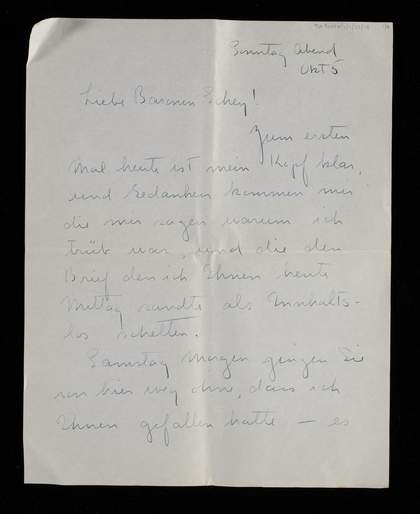 Sonntag Abend
Okt 5
Liebe Baronin Schey!
Zum ersten
Mal heute ist mein Kopf klar,
und Gedanken kommen mir
die mir sagen warum ich
trüb war, und die den
Brief den ich Ihnen heute
Mittag sandte als Innhalts-
los schelten.
Samstag Morgen gingen Sie
von hier weg ohne, dass ich
Ihnen gefallen hatte — es